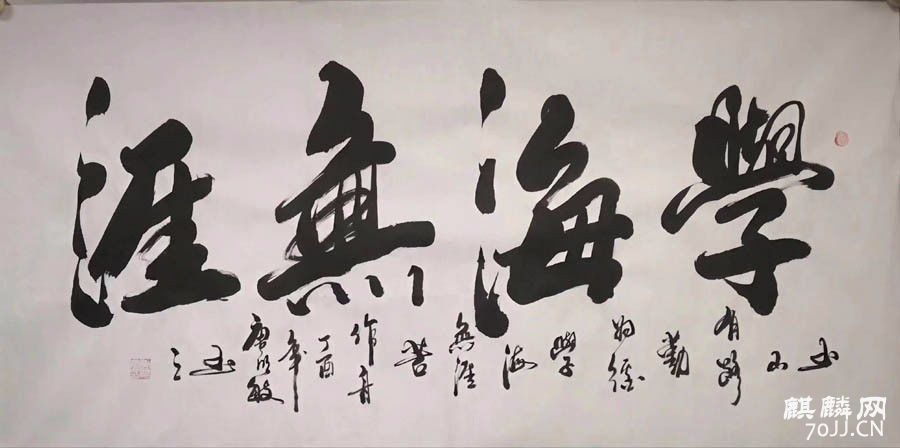 學海無涯
書山
有路
勤
為徑
學
海
無涯
苦
作舟
丁酉
年
唐明敏
書
麒麟网
70JJ.CN